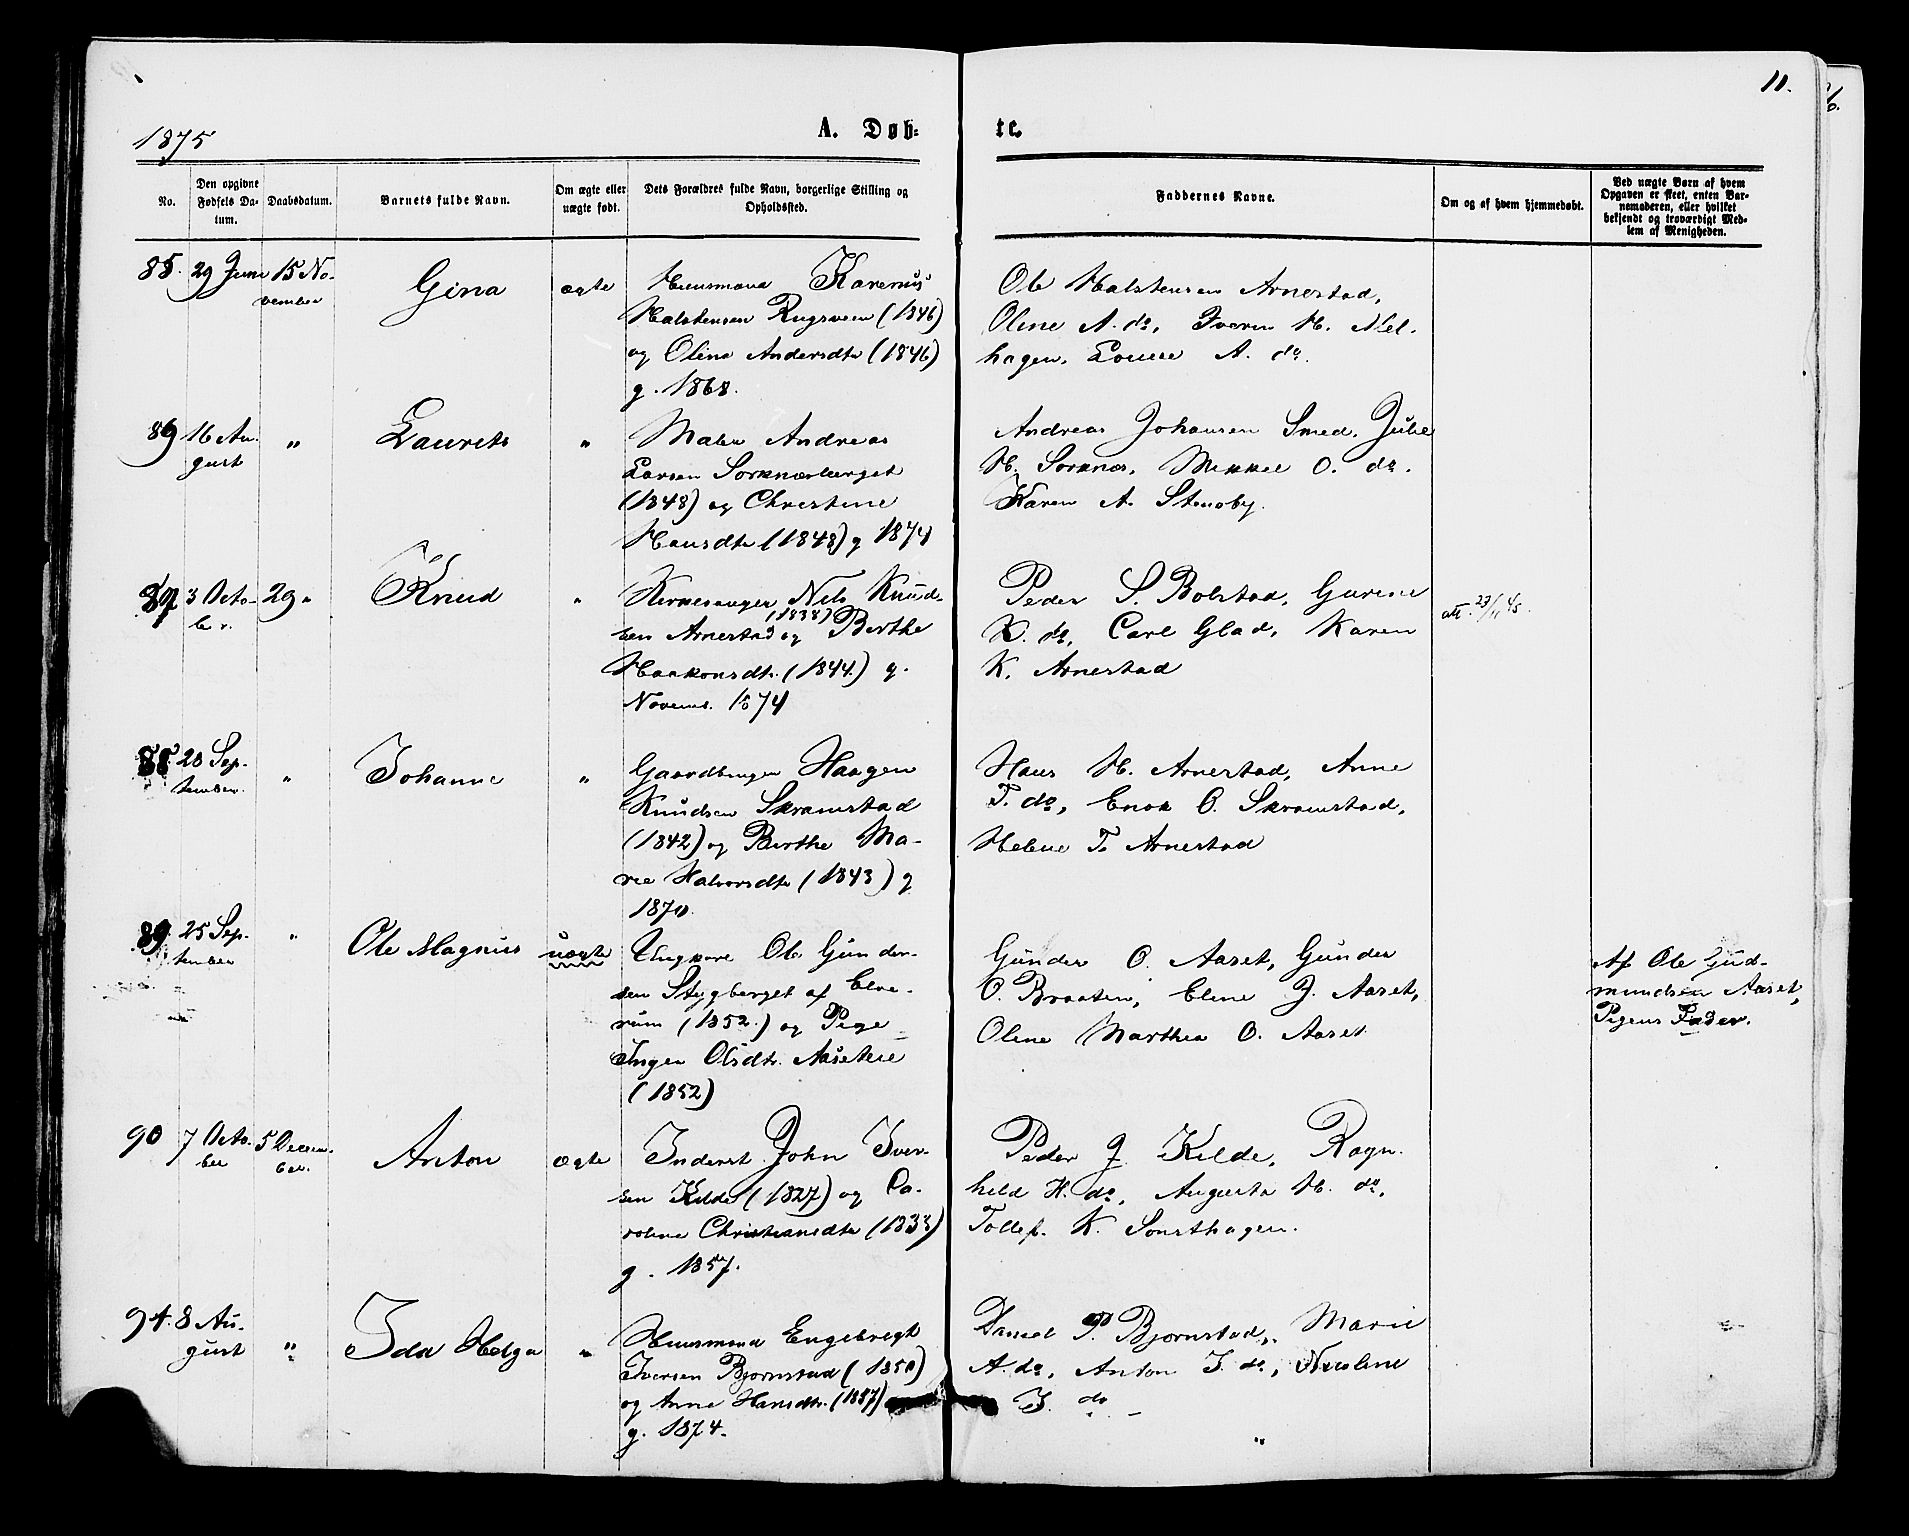 11.
1875
A. Døb-
te.
No.
Den opgivne Fødsels Da-
tum.
Daabsdatum.
Barnets fulde Navn.
Om ægte eller
uægte født.
Dets Forældres fulde Navn, borgerlige Stilling og
Opholdssted.
Faddernes Navne.
Om og af hvem hjemmedøbt.
Ved uægte Børn af hvem
Opgaven er skeet, enten Bar-
nemoderen, eller hvilket
bekjendt og troværdigt Med-
lem af Menigheden.
85. 29 Juni 15 No-
vember
Gina
ægte
Huusmand Karenus
Halstensen Rugsveen (1846)
og Oline Andersdtr (1846)
g. 1868.
Ole Halstensen Arnestad,
Oline A. do, Iveren H. Mel-
hagen, Louise A. do.
86 16 Au-
gust
"
Laurits
"
Maler Andreas
Larsen Sorknæsberget
(1848) og Christine
Hansdtr (1848) g 1874
Andreas Johansen Smed, Julie
H. Sorknæs, Mikkel O. do.
Karen A. Stensby.
87 3 Octo-
ber.
29 "
Knud
"
Kirkesanger Nils Knud-
sen Arnestad (1838) og Berthe
Haakonsdtr. (1844.) g.
Novemb. 1874
Peder S. Bolstad, Gurine
K. do, Carl Glad, Karen
K. Arnestad
att. 23/11 45.
88 20 Sep-
tember.
"
Johanne
"
Gaardbruger Haagen
Knudsen Skramstad
(1842) og Berthe Ma-
rie Halvorsdtr (1843) g
1870.
Hans H. Arnestad, Anne
T. do, Enok O. Skramstad,
Helene T. Arnestad
89. 25 Sep-
tember
"
Ole Magnus
uægte
Ungkarl Ole Gunder-
sen Stygberget af Elve-
rum (1852.) og Pige
Inger Olsdtr. Aaseteie
(1852)
Gunder O. Aaset, Gunder
O. Braaten, Eline J. Aaset,
Oline Marthea O. Aaset
Af Ole Gud-
mundsen Aaset,
Pigens Fader.
90 7 Octo-
ber
5 Decem-
ber.
Anton
ægte
Inderst John Iver-
sen Kilde (1827) og Ca-
roline Christiansdtr (1833)
g. 1857.
Peder J. Kilde, Ragn-
hild H. do, Augusta H. do,
Tollef K. Sonsthagen.
91. 8 Au-
gust
"
Ida Helga
"
Huusmand Engebregt
Iversen Bjørnstad (1850)
og Anne Hansdtr. (1847)
g. 1874.
Daniel P. Bjørnstad, Marie
A. do, Anton I. do, Nicoline
I. do
"